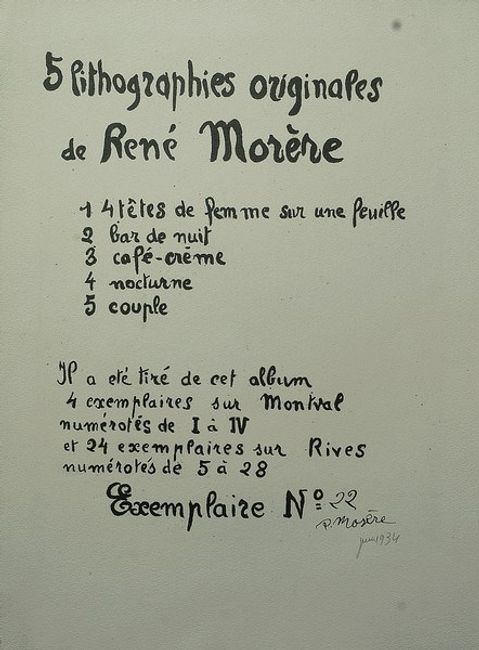 5 lithographies originales
de René Morère
1 4 têtes de femme sur une feuille
2 bar de nuit
3 café-crème
4 nocturne
5 couple
Il a eté tiré de cet album
4 exemplaires sur Montval
numérotés de I à IV
et 24 exemplaires sur Rives
numérotés de 5 à 28
Exemplaire Nº 22
R. Morère
1934